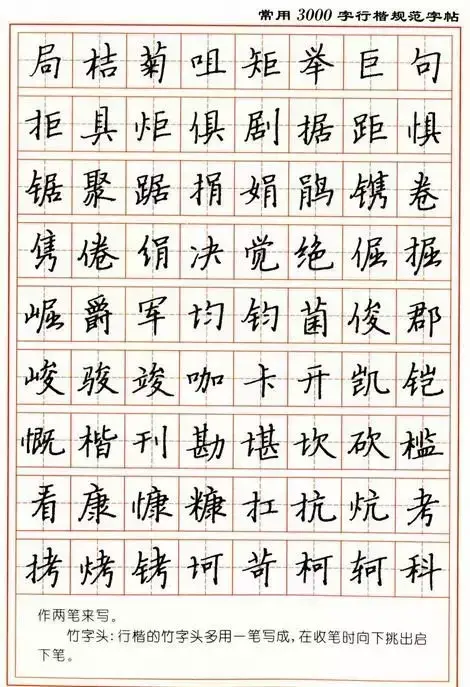 常用3000字行楷规范字帖
局桔菊咀矩举巨句
拒具炬俱剧据距惧
锯聚踞捐娟鹃镌卷
隽倦绢决觉绝倔掘
崛爵军均钧菌俊郡
峻骏竣咖卡开凯铠
慨楷刊勘堪坎砍槛
看康慷糠扛抗炕考
拷烤铐坷苛柯轲科
作两笔来写。
竹字头:行楷的竹字头多用一笔写成,在收笔时向下挑出启
下笔。